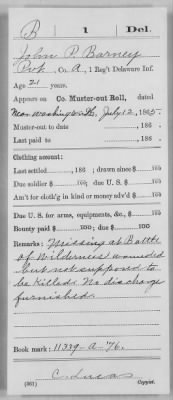 B | 1 | Del.
John P. Barney
Pvt, Co. A, 1 Reg't Delaware Inf.
Age 21 years.
Appears on Co. Muster-out Roll, dated
Near Washington D.C. July 12, 1865.
Muster-out to date , 186 .
Last paid to , 186 .
Clothing account:
Last settled , 186 ; drawn since $ 100
Due soldier $ 100; due U. S. $ 100
Am't for cloth'g in kind or money adv'd $ 100
Due U. S. for arms, equipments, &c., $ 100
Bounty paid $ 100; due $ 100
Remarks: Missing at Battle
of Wilderness wounded
but not supposed to
be killed. No discharge
furnished.
Book mark: 11339-A-'76.
(361) C. Lucas
Copyist.